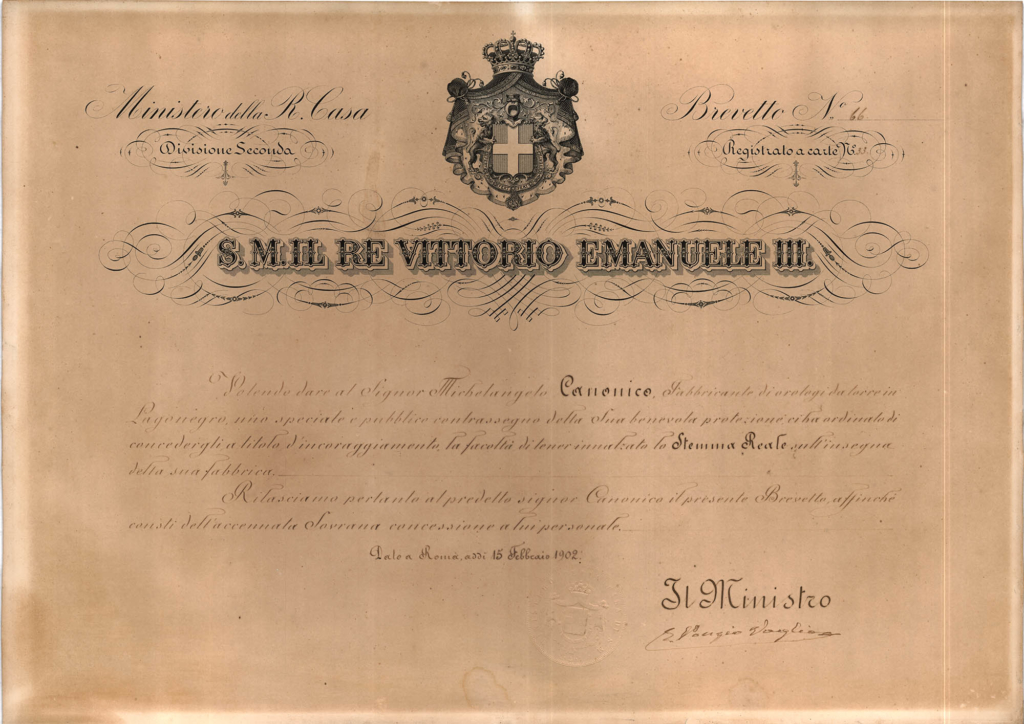 Ministero della R. Casa
Divisione Seconda
Brevetto N.º 66
Registrato a carte N. 33
S. M. IL RE VITTORIO EMANUELE III.
Volendo dare al Signor Michelangelo Canonico, Fabbricante di orologi da torre in
Lagonegro, uno speciale e pubblico contrassegno della Sua benevola protezione ci ha ordinato di
concedergli a titolo d'incoraggiamento, la facoltà di tener innalzato lo Stemma Reale sull'insegna
della sua fabbrica.
Rilasciamo pertanto al predetto signor Canonico il presente Brevetto, affinchè
consti dell'accennata Sovrana concessione a lui personale.
Dato a Roma, addì 15 Febbraio 1902.
Il Ministro